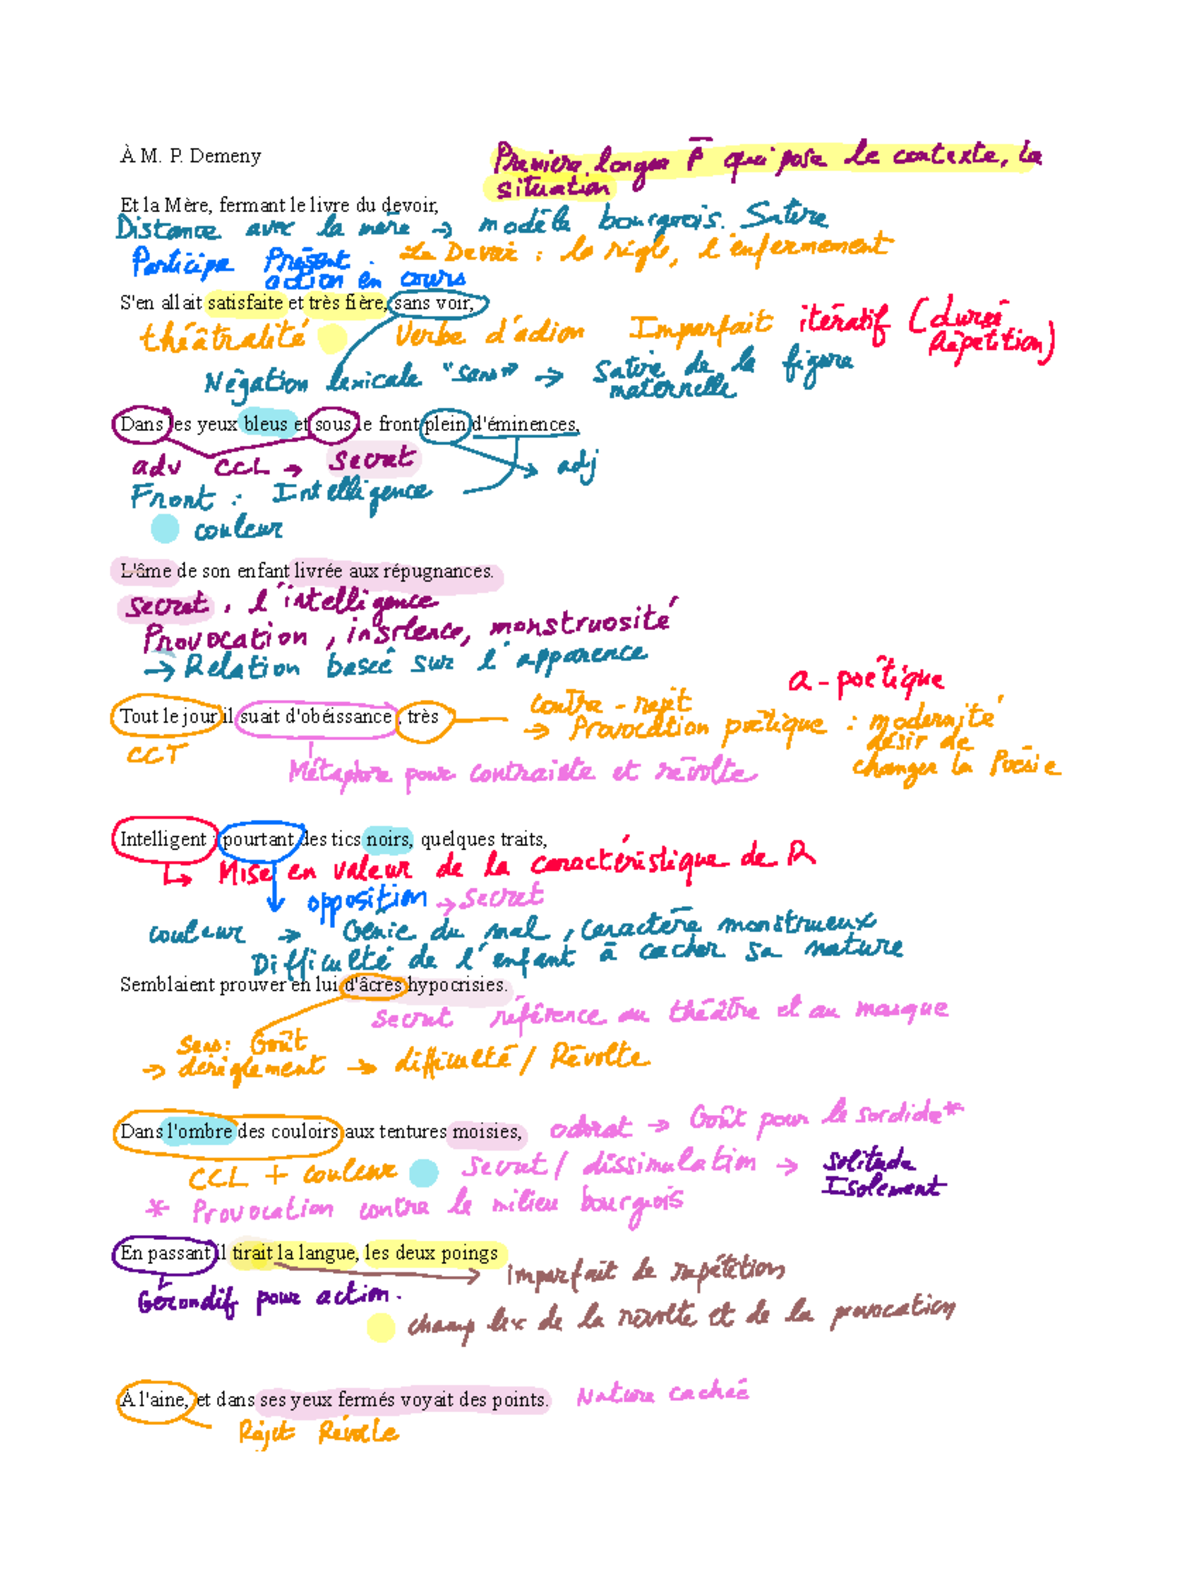 À M. P. Demeny
Première longue P̅ qui pose le contexte, la
situation
Et la Mère, fermant le livre du devoir,
Distance avec la mère → modèle bourgeois. Satire
Participe Présent : action en cours
Le Devoir : la règle, l'enfermement
S'en allait satisfaite et très fière, sans voir,
théâtralité Verbe d'action Imparfait itératif (durée
Répétition)
Négation lexicale "sans" → Satire de la figure
maternelle
Dans les yeux bleus et sous le front plein d'éminences,
adv CCL → Secret → adj
Front : Intelligence
couleur
L'âme de son enfant livrée aux répugnances.
Secret, l'intelligence
Provocation, insolence, monstruosité
→ Relation baseé sur l'apparence
a-poétique
Tout le jour il suait d'obéissance ; très
contre-rejet
→ Provocation poétique : modernité
désir de
changer la Poésie
CCT
Métaphore pour contrainte et révolte
Intelligent ; pourtant des tics noirs, quelques traits,
↳ Mise en valeur de la caractéristique de R
opposition → Secret
couleur → Génie du mal, caractère monstrueux
Difficulté de l'enfant à cacher sa nature
Semblaient prouver en lui d'âcres hypocrisies.
Secret référence au théâtre et au masque
Sens: Goût
→ dérèglement → difficulté / Révolte
Dans l'ombre des couloirs aux tentures moisies,
odorat → Goût pour le sordide*
CCL + couleur Secret / dissimulation → Solitude
Isolement
* Provocation contre le milieu bourgeois
En passant il tirait la langue, les deux poings
Imparfait de répétition
Gérondif pour action.
champ lex de la révolte et de la provocation
À l'aine, et dans ses yeux fermés voyait des points.
Nature cachée
Rejet Révolte